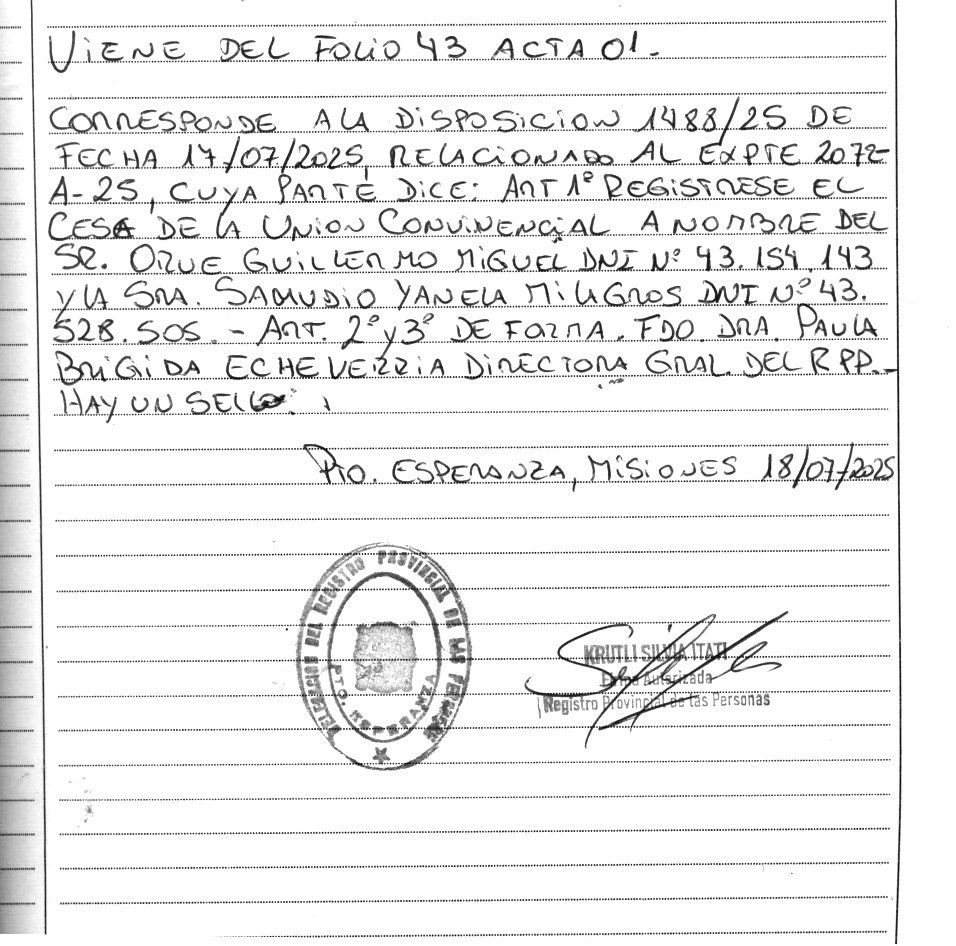 VIENE DEL FOLIO 43 ACTA 01.-
CORRESPONDE A LA DISPOSICION 1488/25 DE
FECHA 17/07/2025, RELACIONADO AL EXPTE 2072-
A-25, CUYA PARTE DICE: ART 1º REGISTRESE EL
CESA DE LA UNION CONVINENCIAL A NOMBRE DEL
SR. ORUE GUILLERMO MIGUEL DNI Nº 43.154.143
Y LA SRA. SAMUDIO YANELA MILAGROS DNI Nº 43.
528.505.- ART. 2º y 3º DE FORMA. FDO DRA. PAULA
BRIGIDA ECHEVERRIA DIRECTORA GRAL. DEL RPP.-
HAY UN SELLO.
Pto. ESPERANZA, MISIONES 18/07/2025
DELEGACION DEL REGISTRO PROVINCIAL DE LAS PERSONAS
PTO. ESPERANZA
KRUTLI SILVIA ITATI
Autorizada
Registro Provincial de las Personas